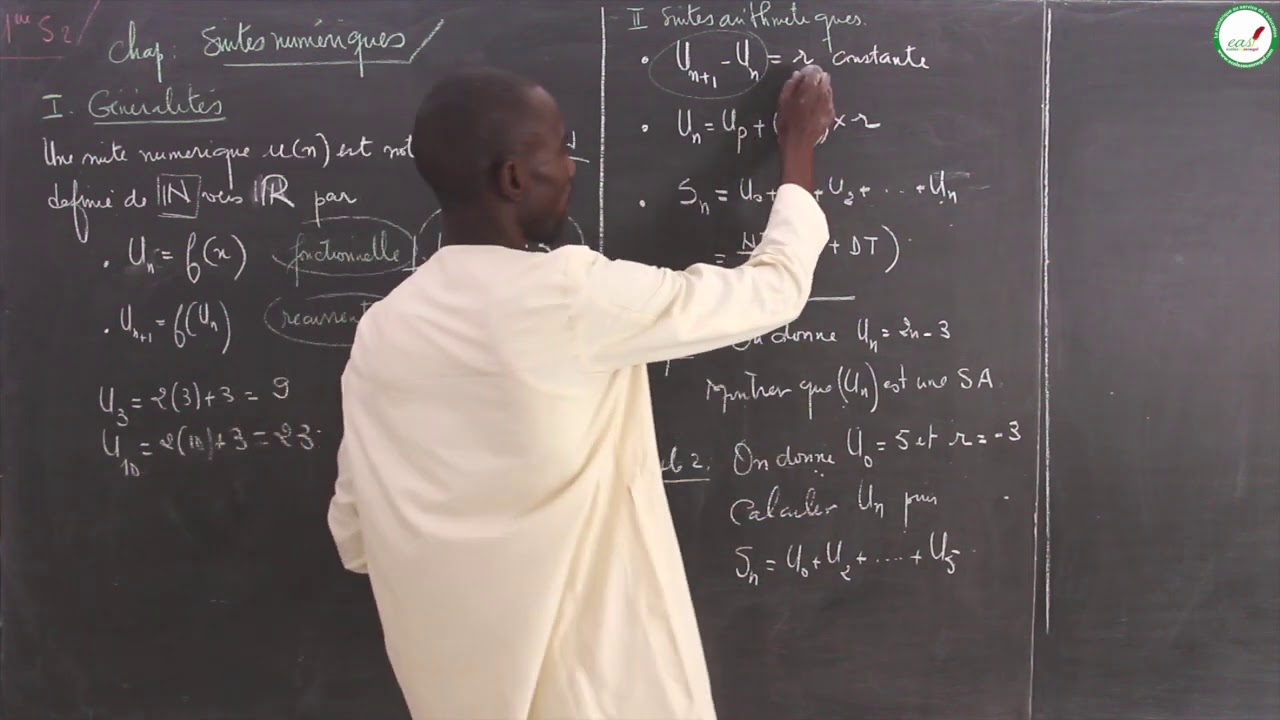 1ère S2
Chap: Suites numériques
I. Généralités
Une suite numerique u(n) est
definie de IN vers IR par
. Un = f(n) fonctionnelle
. Un+1 = f(Un)
U3 = 2(3)+3 = 9
U10 = 2(10)+3 = 23
II Suites arithmetiques.
. Un+1 - Un = r constante
. Un = Up + × r
. Sn = U0 + + U2 + ... + Un
= + DT)
On donne Un = 2n - 3
Montrer que (Un) est une SA
2. On donne U0 = 5 et r = -3
Calculer Un puis
Sn = U0 + U2 + .... + U5
easi